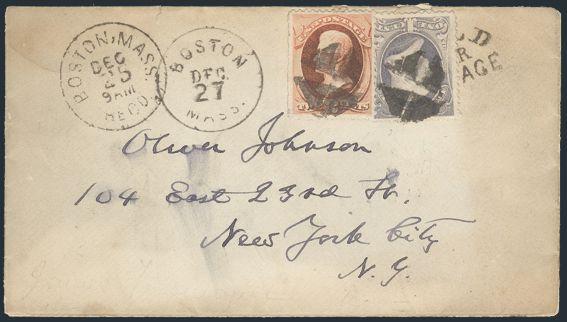 BOSTON, MASS.
DEC
25
9AM
REC'D.
BOSTON
DEC.
27
MASS.
POSTAGE
D
R
AGE
Oliver Johnson
104 East 23rd St.
New York City
N. Y.